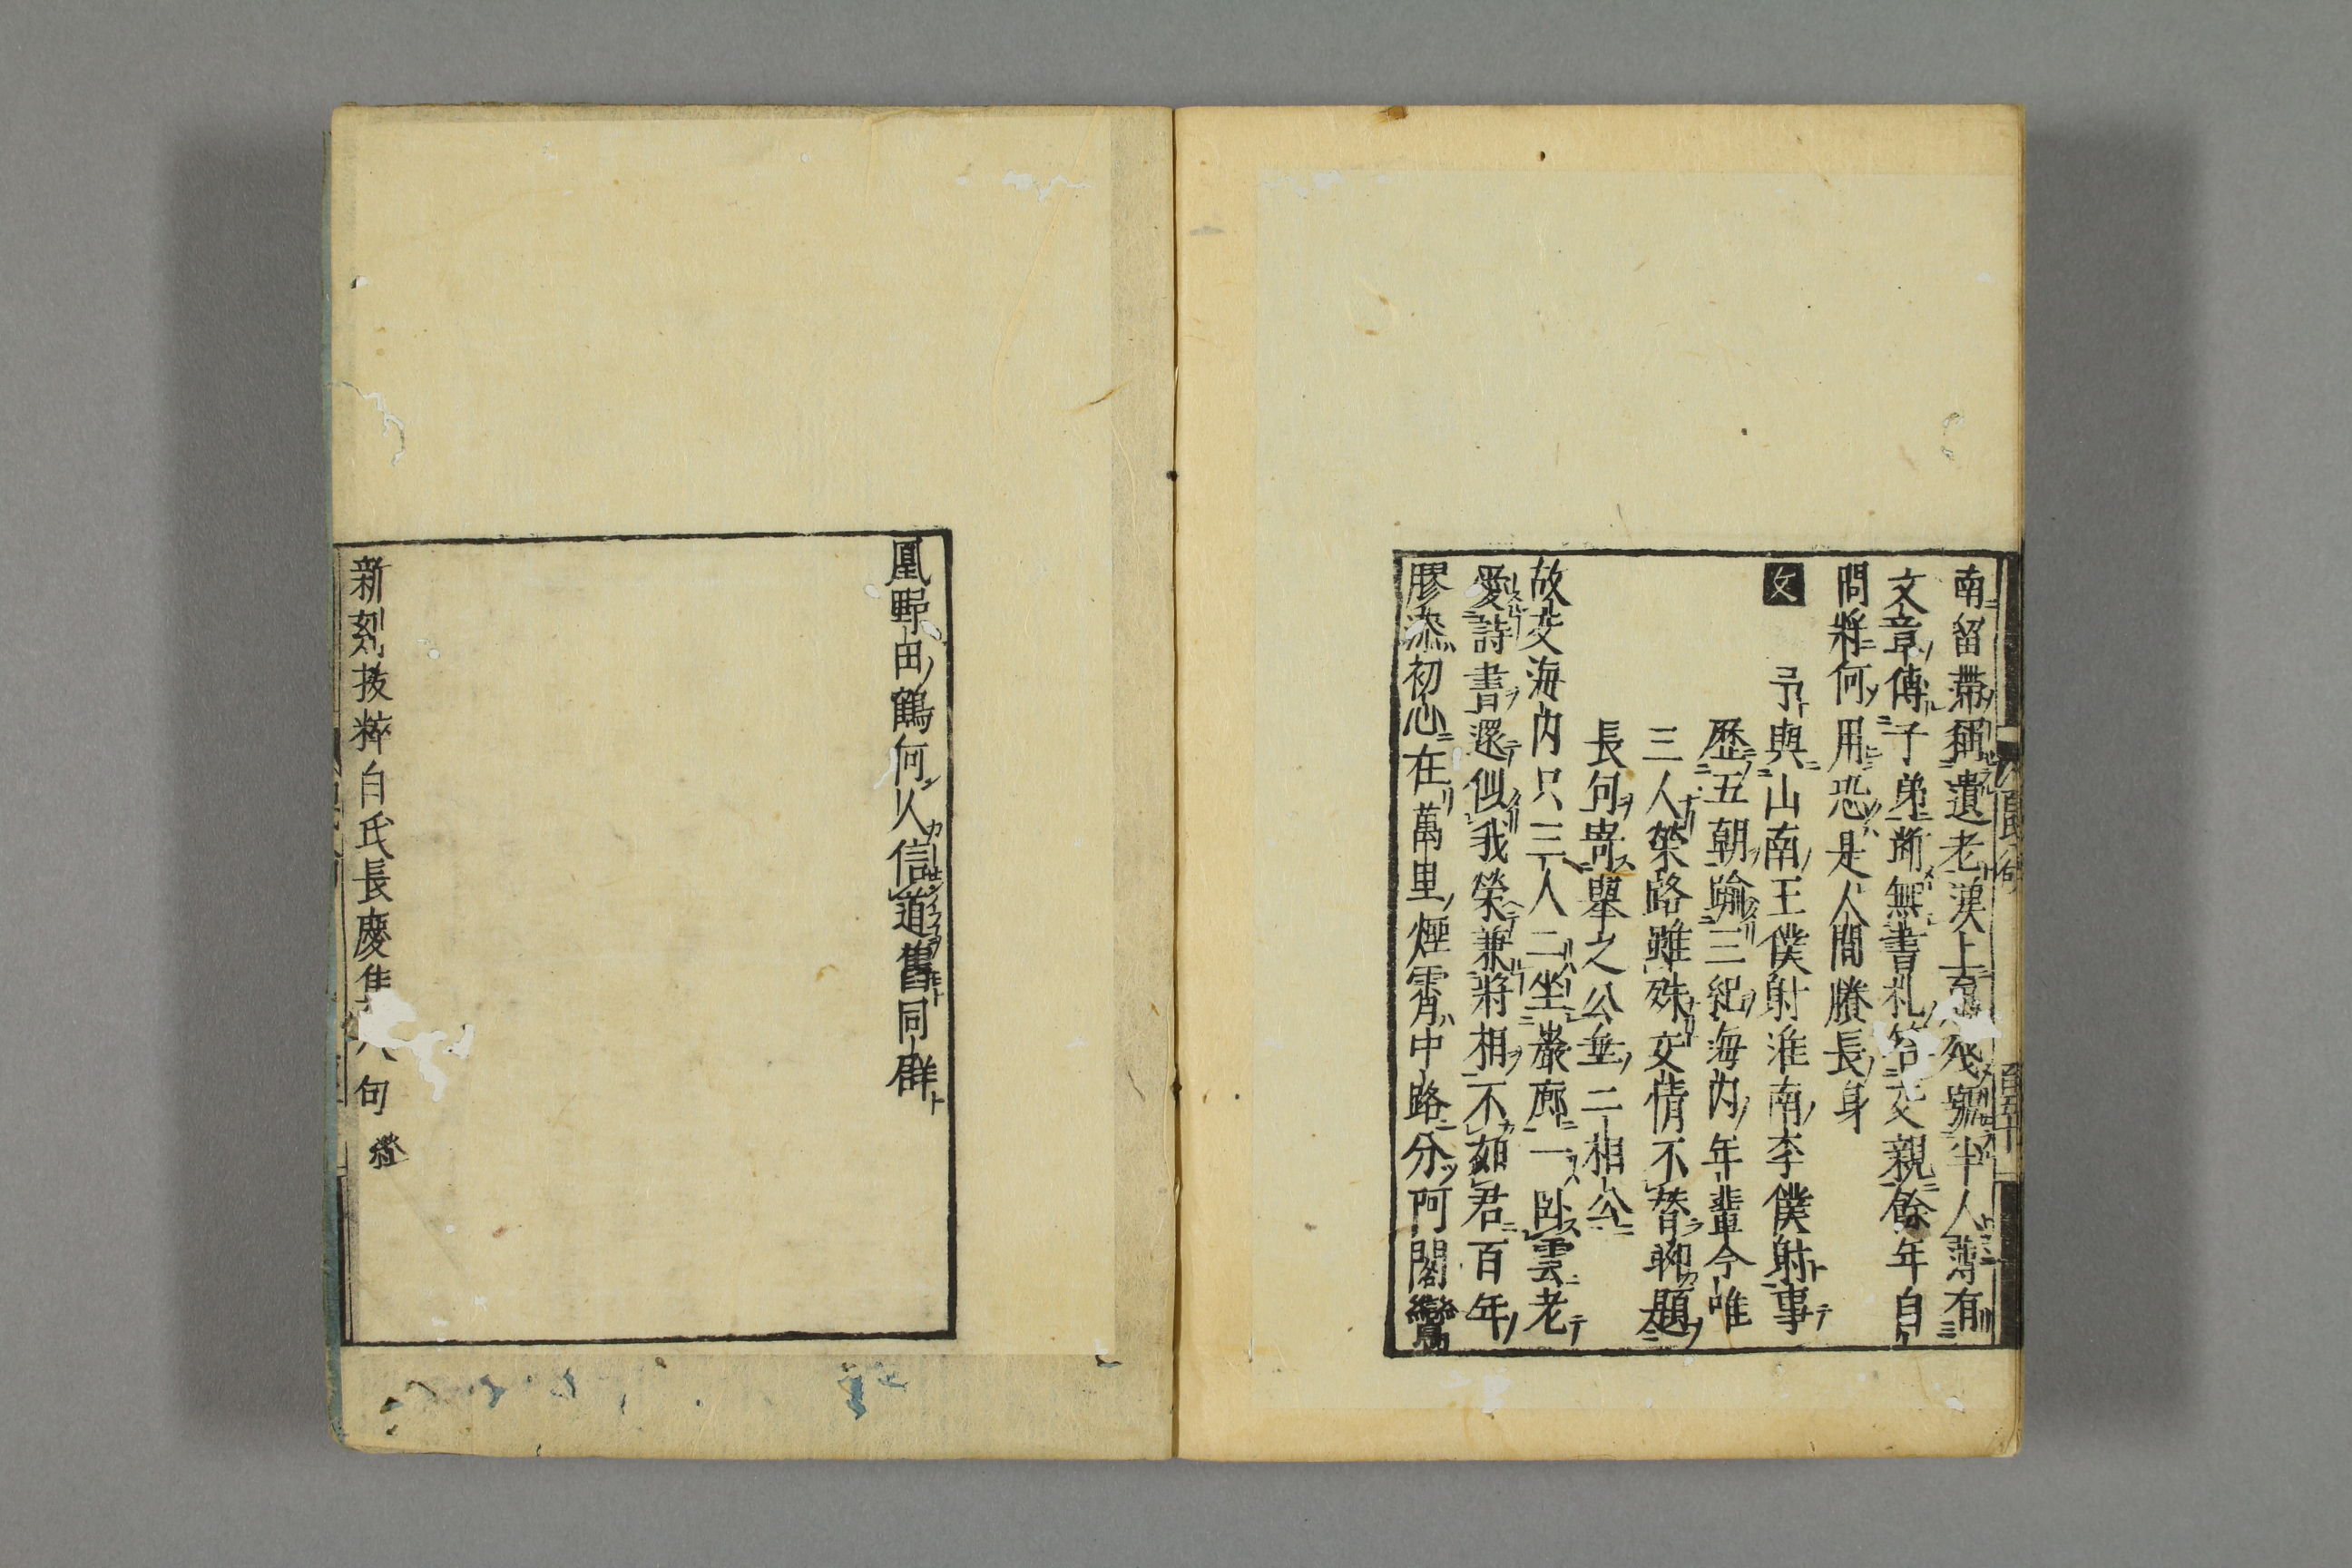 南留帶稱遺老漢上殘半人薄有
文章傳子弟斷無書札答交親餘年自
問將何用恐是人間賸長身
文　予與山南王僕射淮南李僕射事
歷五朝踰三紀海内年輩今唯
三人榮路雖殊交情不替聊題
長句寄擧之公垂二相公
故交海内只三人二坐巖廊一卧雲老
愛詩書還似我榮兼將相不如君百年
膠漆初心在萬里煙霄中路分阿閣鸞
凰野田鶴何人信道舊同群
新刻拔粹白氏長慶集八句